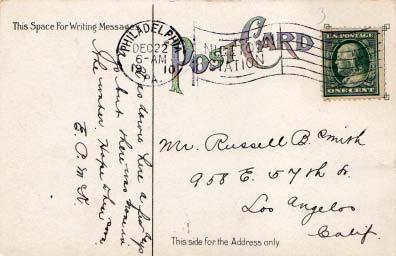 This Space for Writing Messages
POST CARD
PHILADELPHIA
DEC 22
6-AM
10
PA.
STATION
U.S. POSTAGE
ONE CENT
was down here a few
but there was
The water Hope
E. P. M. K.
Mr. Russell B. Smith
958 E. 57th St.
Los Angelos
Calif.
This side for the Address only